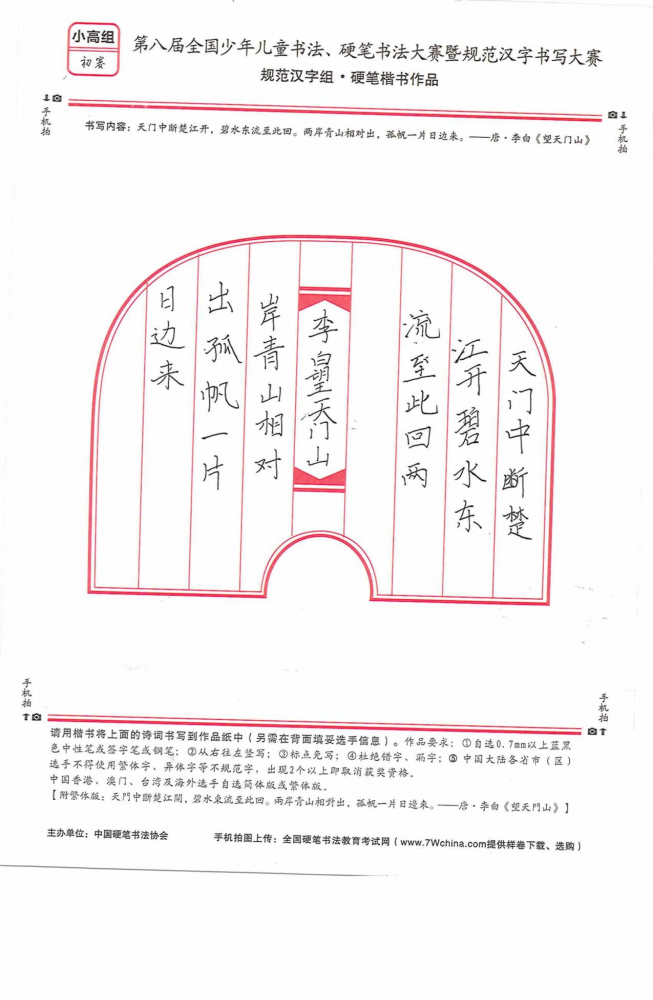 小高组
初赛
第八届全国少年儿童书法、硬笔书法大赛暨规范汉字书写大赛
规范汉字组·硬笔楷书作品
手机拍
手机拍
书写内容：天门中断楚江开，碧水东流至此回。两岸青山相对出，孤帆一片日边来。——唐·李白《望天门山》
天门中断楚
江开碧水东
流至此回两
李白望天门山
岸青山相对
出孤帆一片
日边来
手机拍
手机拍
请用楷书将上面的诗词书写到作品纸中（另需在背面填妥选手信息）。作品要求：①自选0.7mm以上蓝黑
色中性笔或签字笔或钢笔；②从右往左竖写；③标点免写；④杜绝错字、漏字；⑤中国大陆各省市（区）
选手不得使用繁体字、异体字等不规范字，出现2个以上即取消获奖资格。
中国香港、澳门、台湾及海外选手自选简体版或繁体版。
【附繁体版：天門中斷楚江開，碧水東流至此回。兩岸青山相對出，孤帆一片日邊來。——唐·李白《望天門山》】
主办单位：中国硬笔书法协会 手机拍图上传：全国硬笔书法教育考试网（www.7Wchina.com提供样卷下载、选购）